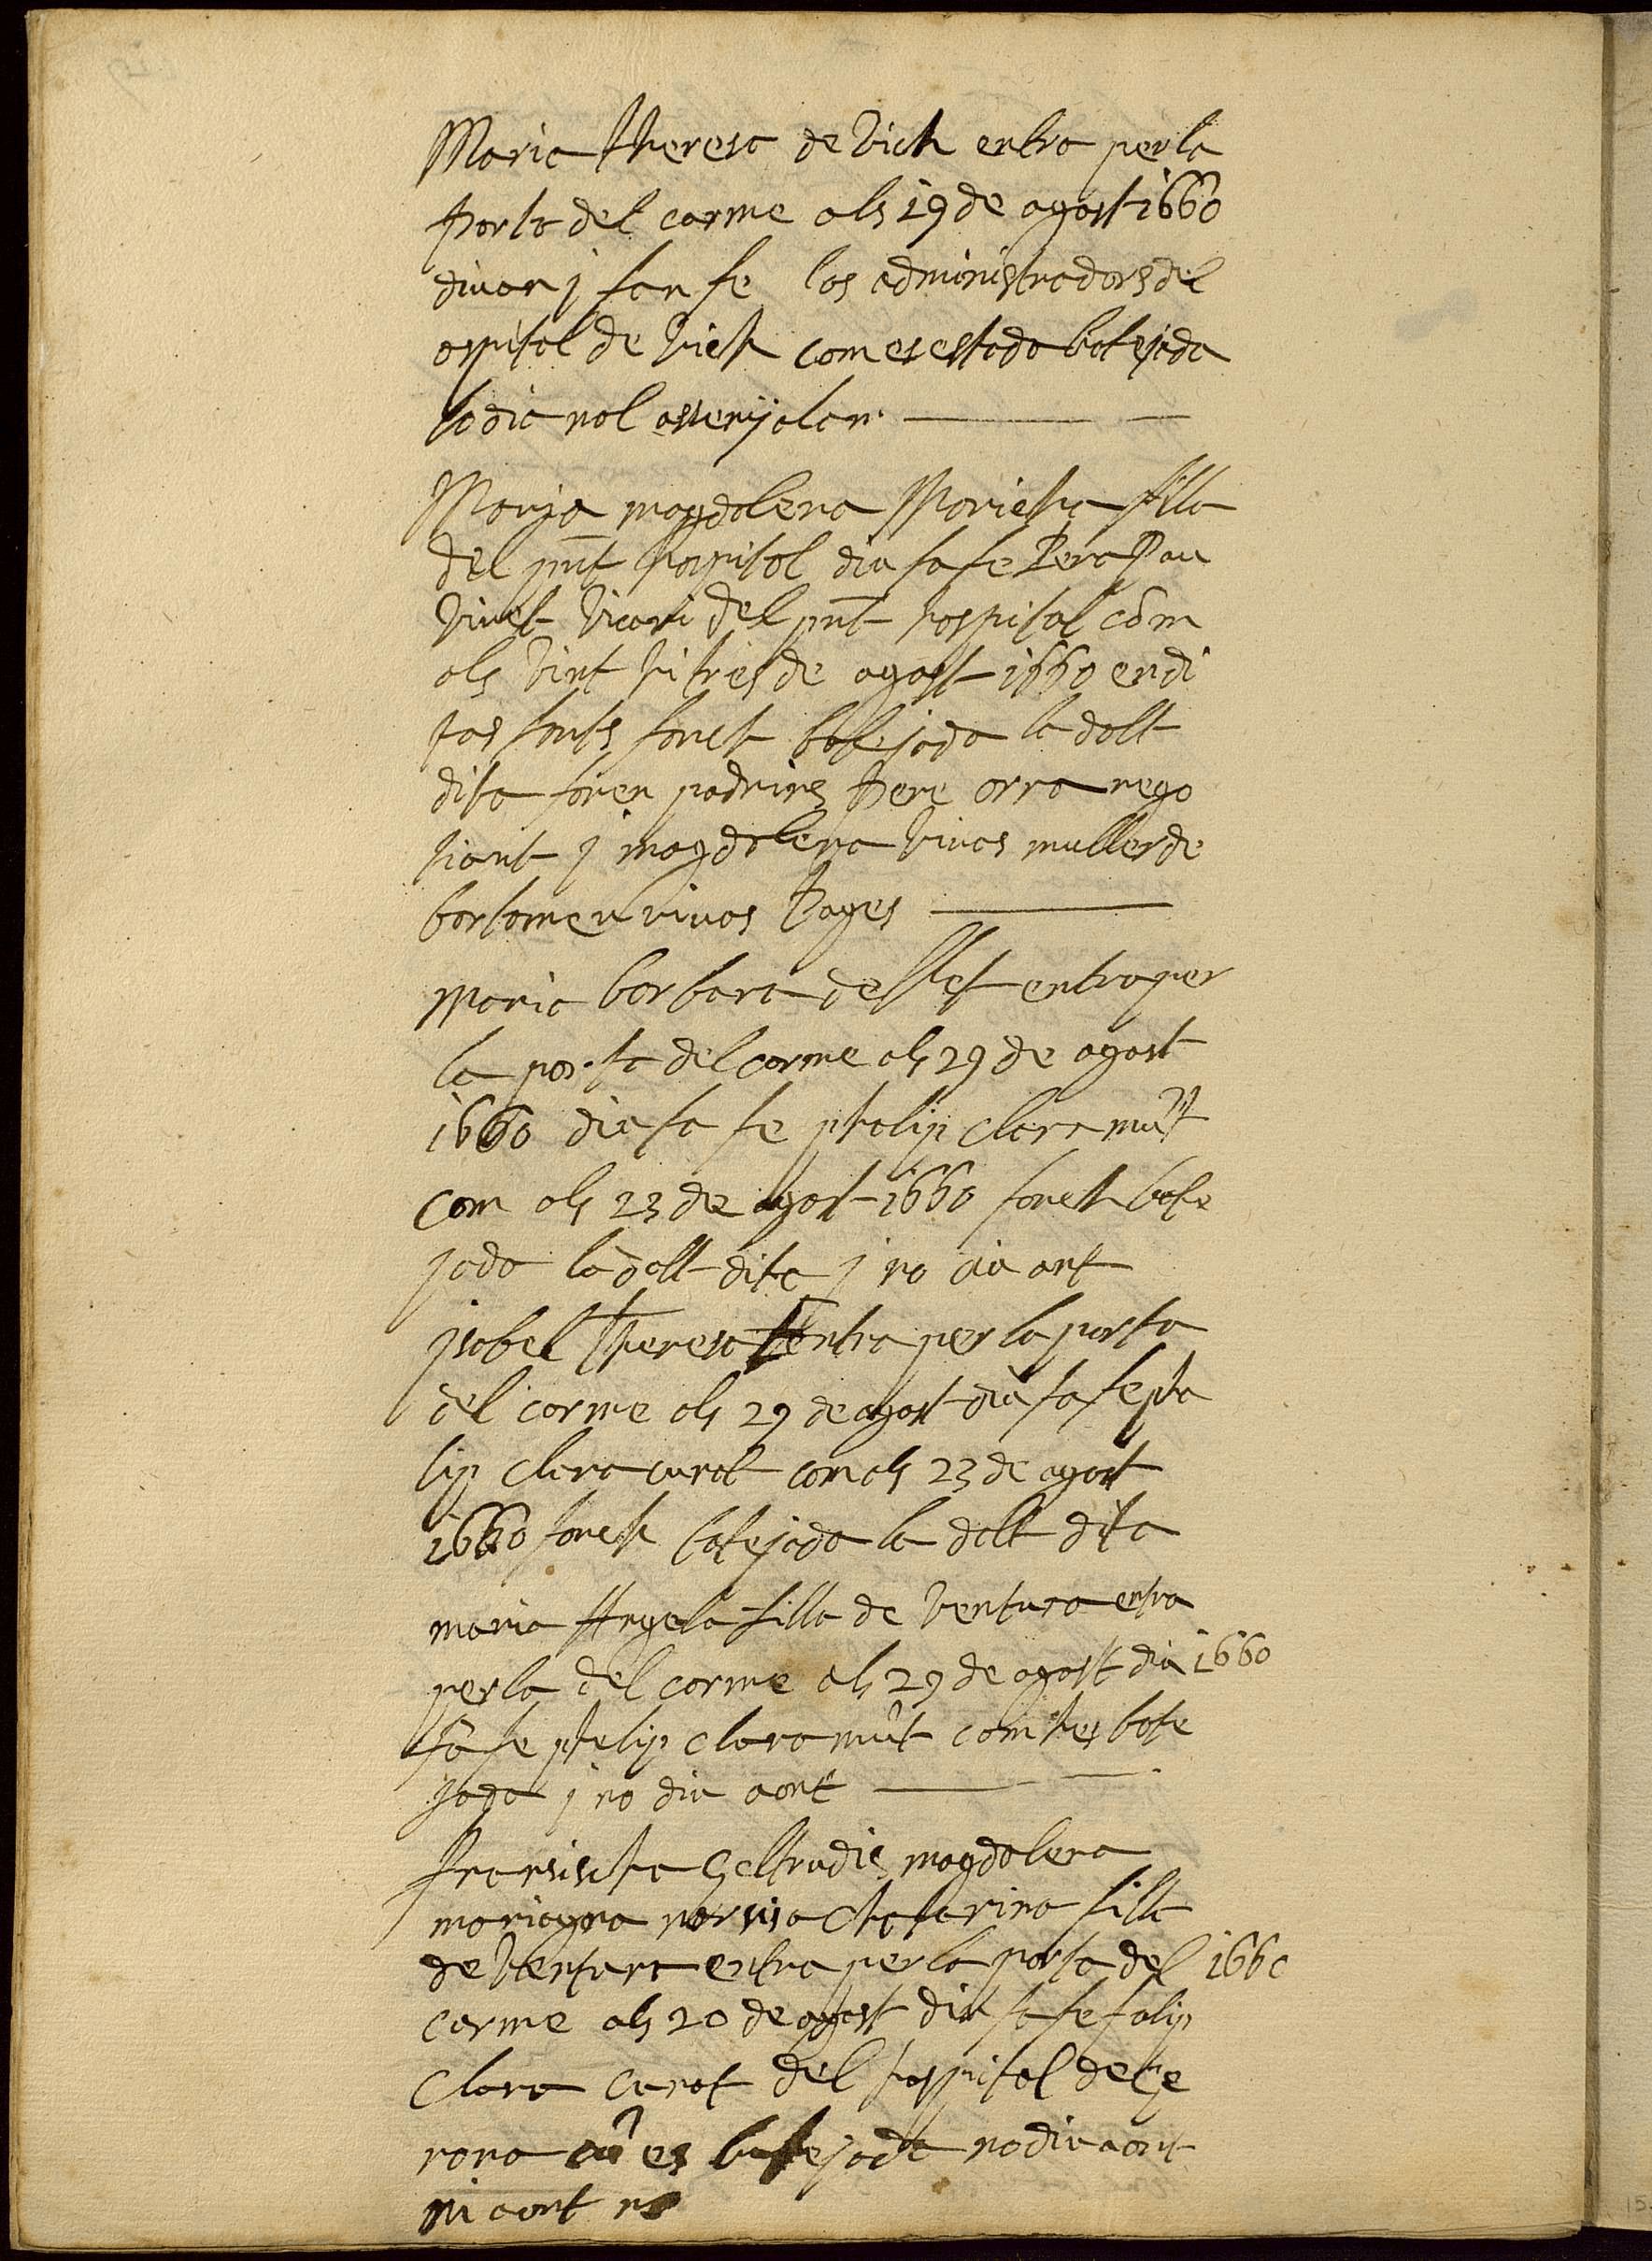 Maria Theresa de Vich entra per la
Porta del carme als 19 de agost 1660
diuan j fan fe los administradors del
ospital de Vich com es estada batejada
lo dia nol assenyalan
Maria magdalena Maricha filla
del pnt hospital diu fa fe Pera Pau
Vinet Vicari del pnt hospital cõm
als Vint Vi tres de agost 1660 en di
tas fonts fonch batejada la dalt
dita foren padrins Pere orra nego
siant j magdalena Vivas muller de
bartomeu vivas Pages
Maria barbara de entra per
la porta del carme als 29 de agost
1660 diu fa fe phalip Clara mũt
com als 23 de agost 1660 fonch bate
jada la dalt dita j no diu ont
jsabel Theresa entra per la porta
del carme als 29 de agost diu fa fe pha
lip Clara curat com als 23 de agost
1660 fonch batejada la dalt dita
maria Angela filla de Ventura entra
per la del carme als 29 de agost diu 1660
fa fe phelip Clara mũt com hes bate
jada j no diu aont
Fransischa Geltrudis magdalena
mariagna narsisa Chatarina filla
de Ventura entra per la porta del 1660
carme als 20 de agost diu fa fe falip
Clara Curat del hospital de Ge
rona cõ es batejada no diu aont
ni aont no